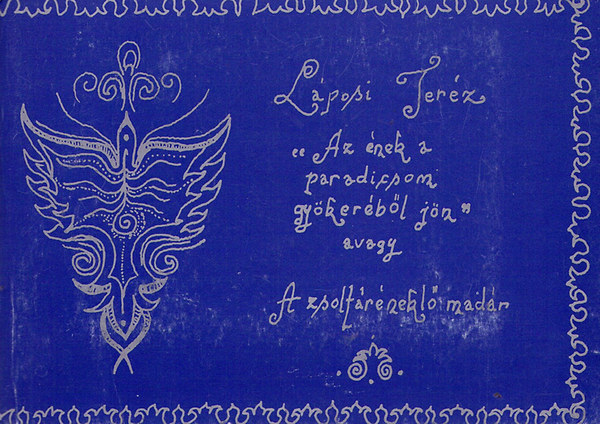 Láposi Teréz
"Az ének a
paradicsom
gyökeréből jön"
avagy
A zsoltáréneklő madár